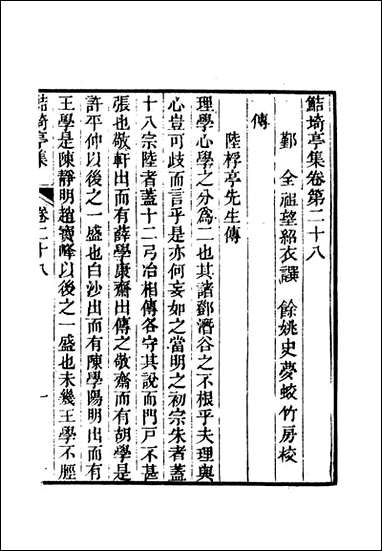 鮚埼亭集卷第二十八
鄞　全祖望紹衣譔　餘姚史夢蛟竹房校
傳
陸桴亭先生傳
理學心學之分爲二也其諸鄧潛谷之不根乎夫理與
心豈可歧而言乎是亦何妄如之當明之初宗朱者蓋
十八宗陸者蓋十二弓冶相傳各守其說而門戶不甚
張也敬軒出而有薛學康齋出傳之敬齋而有胡學是
許平仲以後之一盛也白沙出而有陳學陽明出而有
王學是陳靜明趙寶峰以後之一盛也未幾王學不脛
鮚埼亭集　卷二十八　一